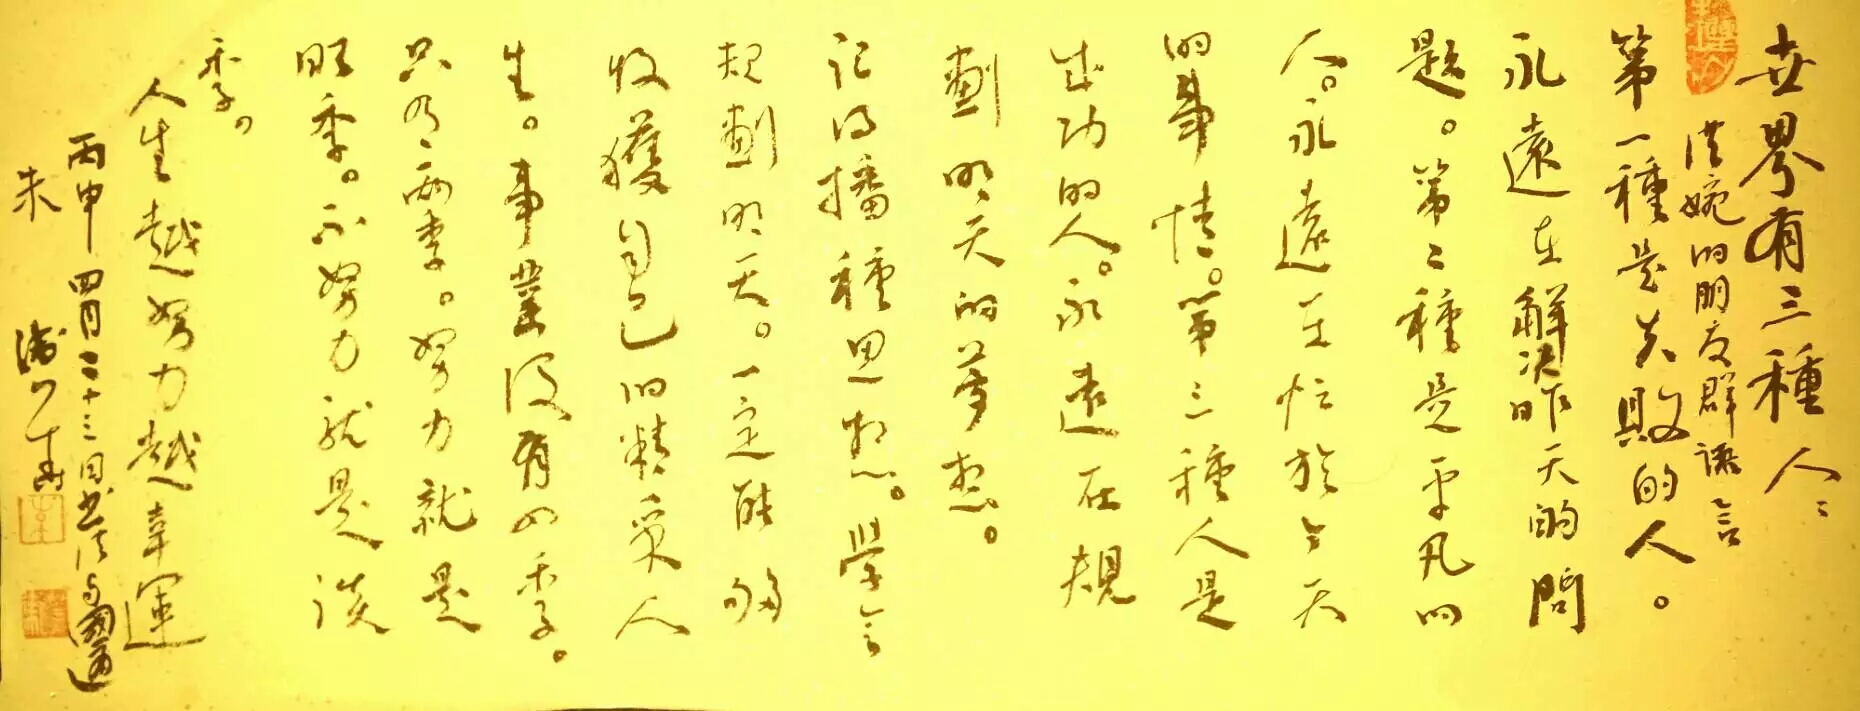 世界有三種人：
洪婉的朋友群語言
第一種是失敗的人。
永遠在解决昨天的問
題。第二種是平凡的
人。永遠在忙於今天
的事情。第三種人是
成功的人。永遠在規
劃明天的夢想。
記得播種思想。學會
規劃明天。一定能够
收獲自己的精彩人
生。事業没有四季。
只有兩季。努力就是
旺季。不努力就是淡
季。
人生越努力越幸運
丙申四月二十三日書於
朱